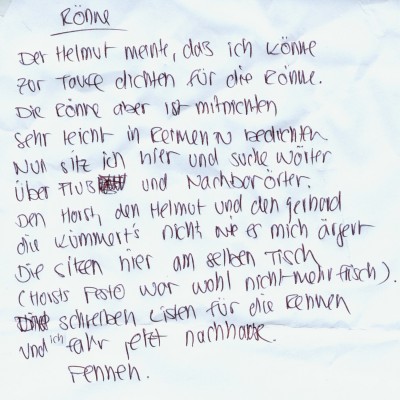 Rönne
Der Helmut meinte, dass ich könne
zur Taufe dichten für die Rönne.
Die Rönne aber ist mitnichten
sehr leicht in Reimen zu bedichten
Nun sitz ich hier und suche Wörter
über Fluß und Nachbarörter.
Den Horst, den Helmut und den Gerhard
die kümmert's nicht wie es mich ärgert
Die sitzen hier am selben Tisch
(Horsts Pesto war wohl nicht mehr frisch).
schreiben Listen für die Rennen
und ich fahr jetzt nachhause.
Pennen.